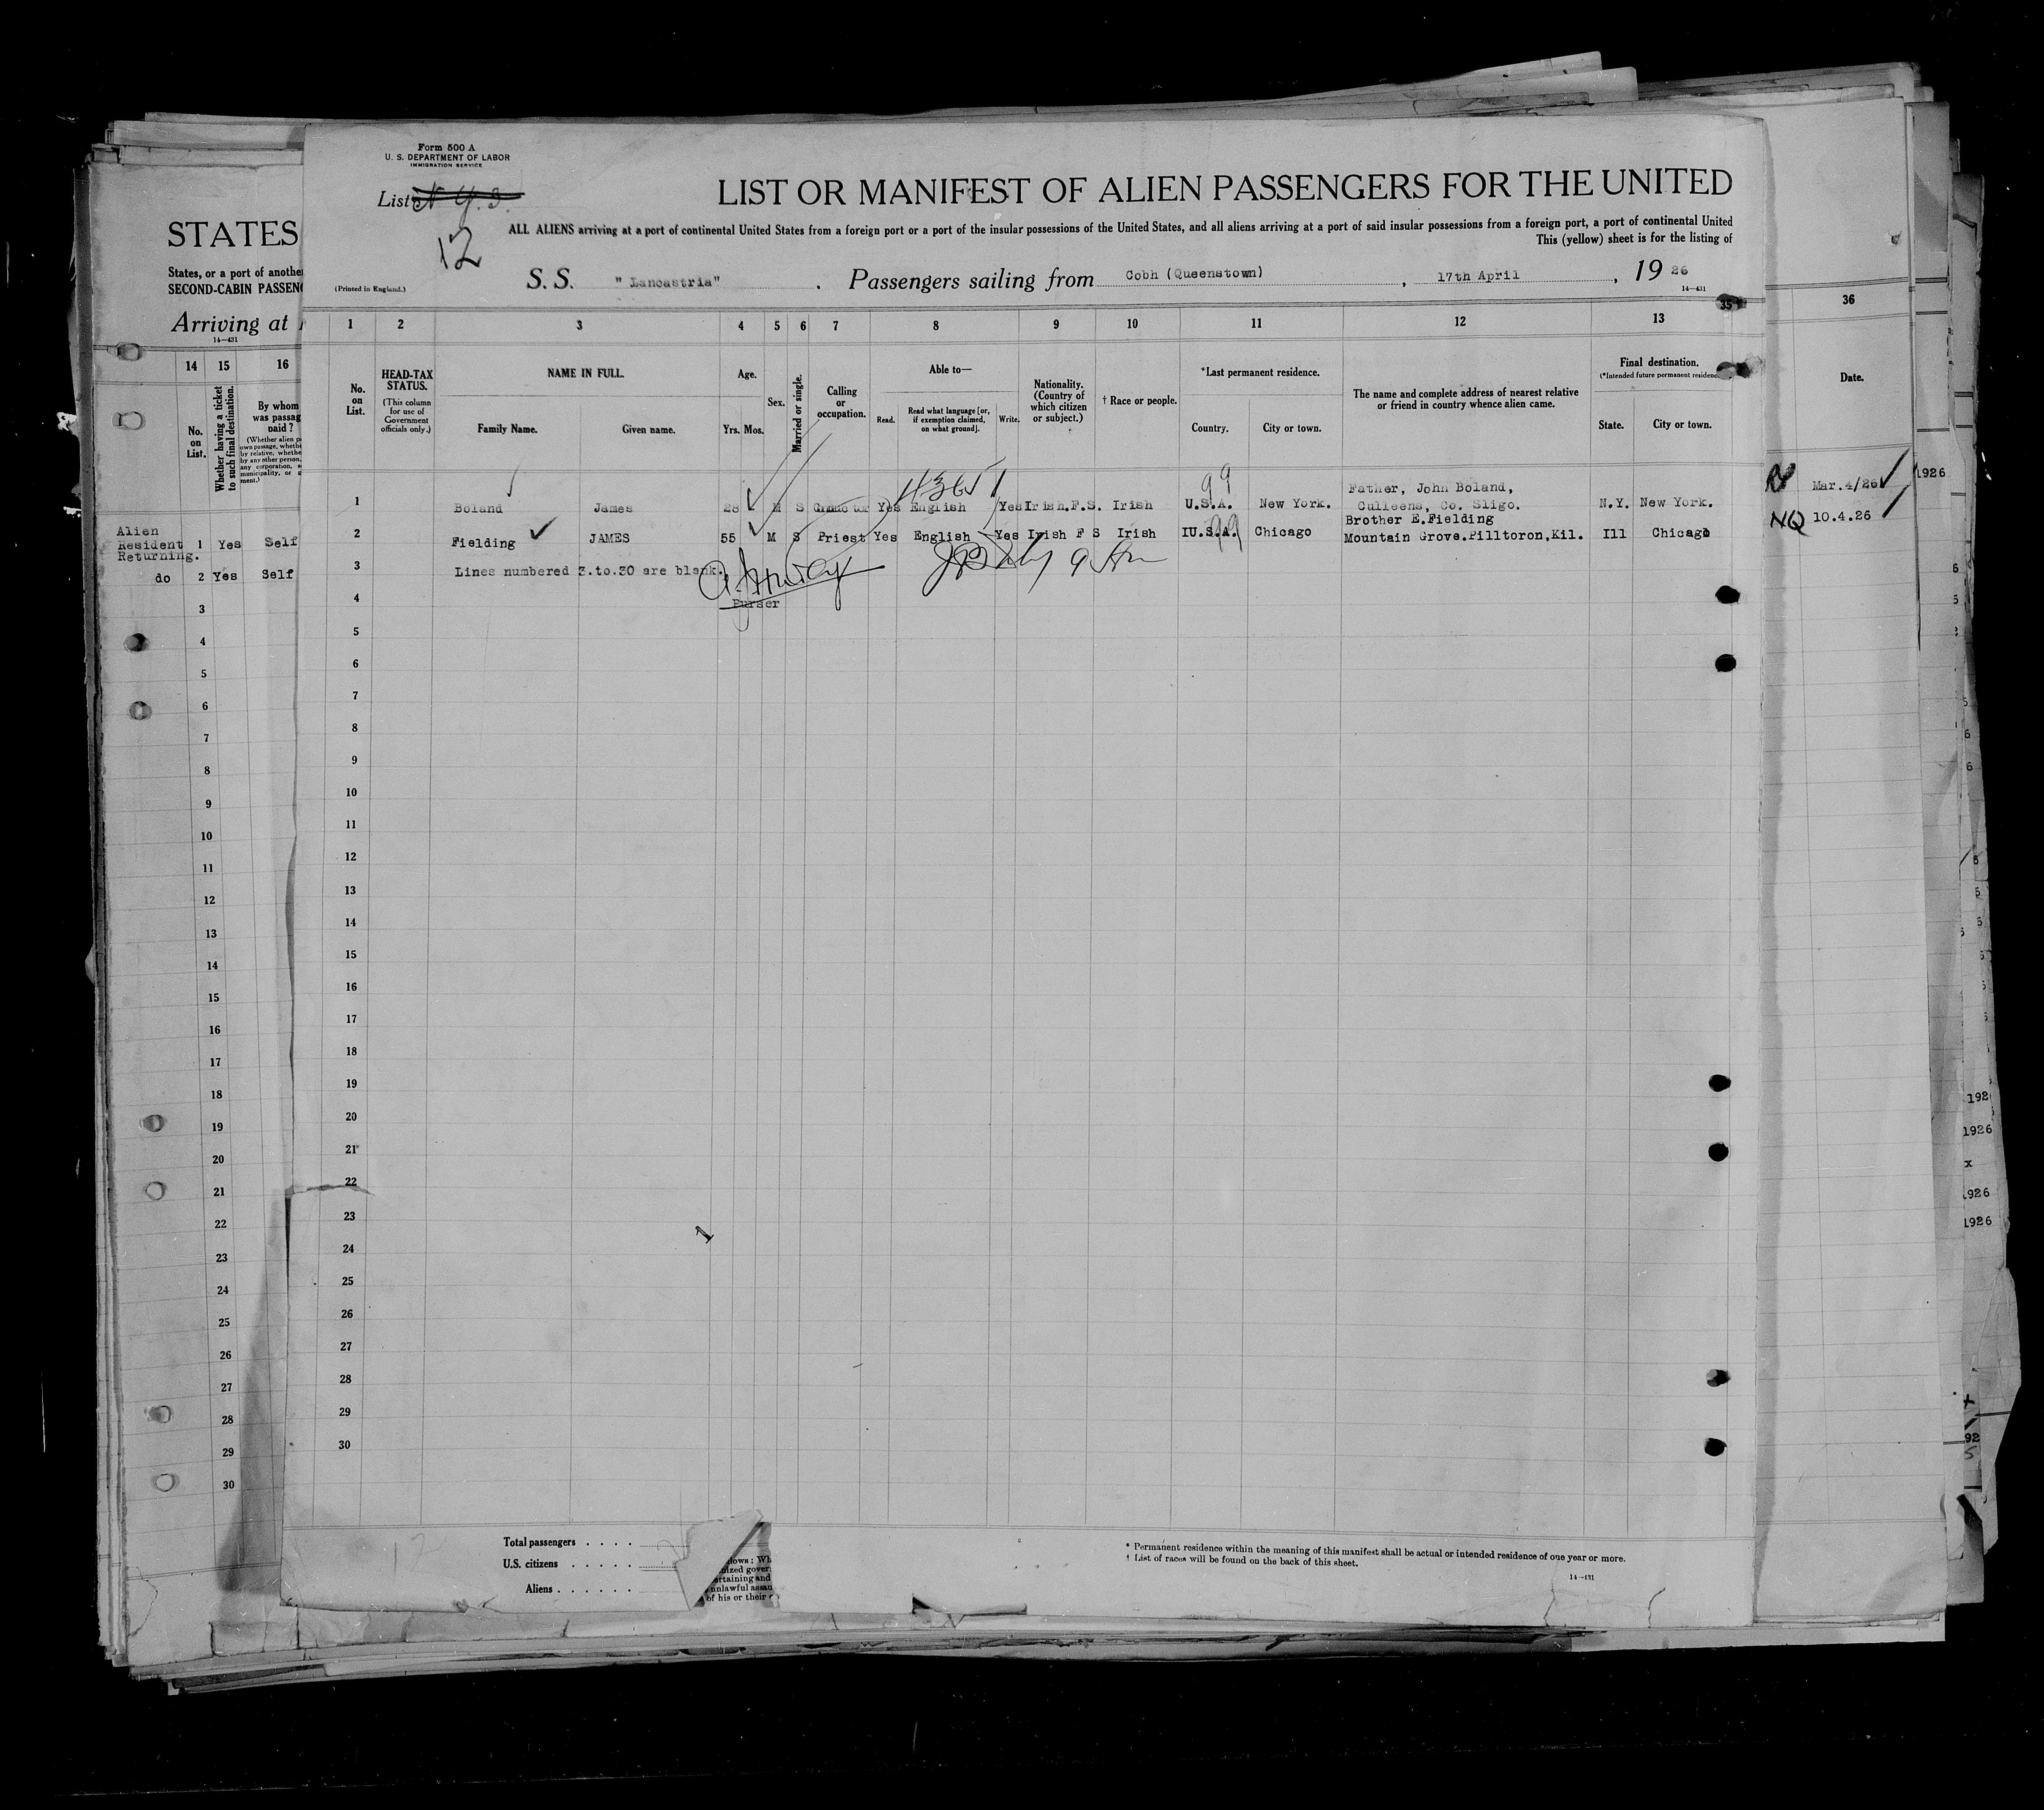 Form 500 A
U. S. DEPARTMENT OF LABOR
IMMIGRATION SERVICE
List N.Y. 3.
12
LIST OR MANIFEST OF ALIEN PASSENGERS FOR THE UNITED
ALL ALIENS arriving at a port of continental United States from a foreign port or a port of the insular possessions of the United States, and all aliens arriving at a port of said insular possessions from a foreign port, a port of continental United
This (yellow) sheet is for the listing of
(Printed in England.)
S. S. " Lancastria" . Passengers sailing from Cobh (Queenstown) , 17th April , 19 26
14—431
STATES
States, or a port of another
SECOND-CABIN PASSEN
Arriving at
14—431
14 15 16
No. on List.
Whether having a ticket to such final destination.
By whom was passag paid ?
(Whether alien p
own passage, wheth
by relative, whethe
by any other person,
any corporation, s
municipality, or
ment.)
1 2 3 4 5 6 7 8 9 10 11 12 13 35 36
No. on List.
HEAD-TAX STATUS.
(This column for use of Government officials only.)
NAME IN FULL.
Family Name. Given name.
Age.
Yrs. Mos.
Sex.
Married or single.
Calling or occupation.
Able to—
Read. Read what language [or, if exemption claimed, on what ground]. Write.
Nationality. (Country of which citizen or subject.)
† Race or people.
*Last permanent residence.
Country. City or town.
The name and complete address of nearest relative or friend in country whence alien came.
Final destination.
(*Intended future permanent residenc
State. City or town.
Date.
99
1 Boland James 28 M S Yes English Yes Irish.F.S. Irish U.S.A. New York. Father, John Boland, Culleens, Co. Sligo. N.Y. New York. Mar.4/26
1926
2 Fielding JAMES 55 M S Priest Yes English Yes Irish F S Irish IU.S.A. 99 Chicago Brother E.Fielding Mountain Grove.Pilltoron,Kil. Ill Chicago NQ 10.4.26
3 Lines numbered 3.to.30 are blank.
Purser
4
5
6
7
8
9
10
11
12
13
14
15
16
17
18
19
20
21
22
23
24
25
26
27
28
29
30
Alien
Resident 1 Yes Self
Returning.
do 2 Yes Self
3
4
5
6
7
8
9
10
11
12
13
14
15
16
17
18
19
20
21
22
23
24
25
26
27
28
29
30
192
1926
x
1926
1926
92
1
Total passengers . . . .
U.S. citizens . . . . . .
Aliens . . . . . . .
lows : Wh
nized gover
ertaining and
unlawful assau
of his or their
* Permanent residence within the meaning of this manifest shall be actual or intended residence of one year or more.
† List of races will be found on the back of this sheet.
14—431